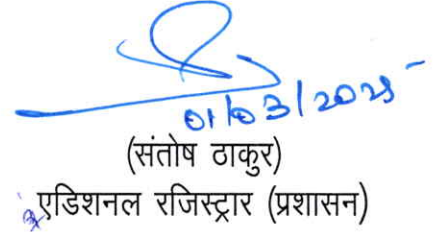 01/03/2025
(संतोष ठाकुर)
एडिशनल रजिस्ट्रार (प्रशासन)